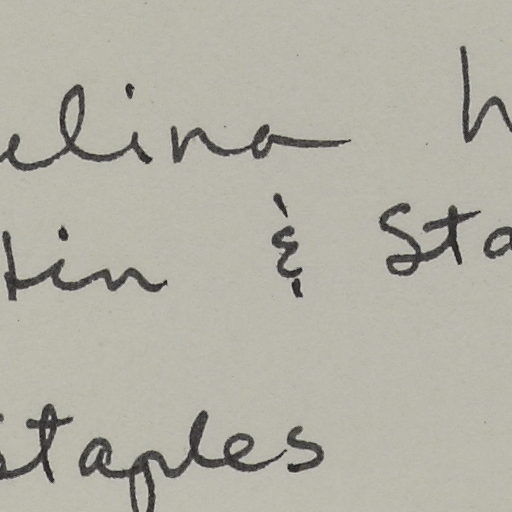 elina h
tin & Sta
Staples